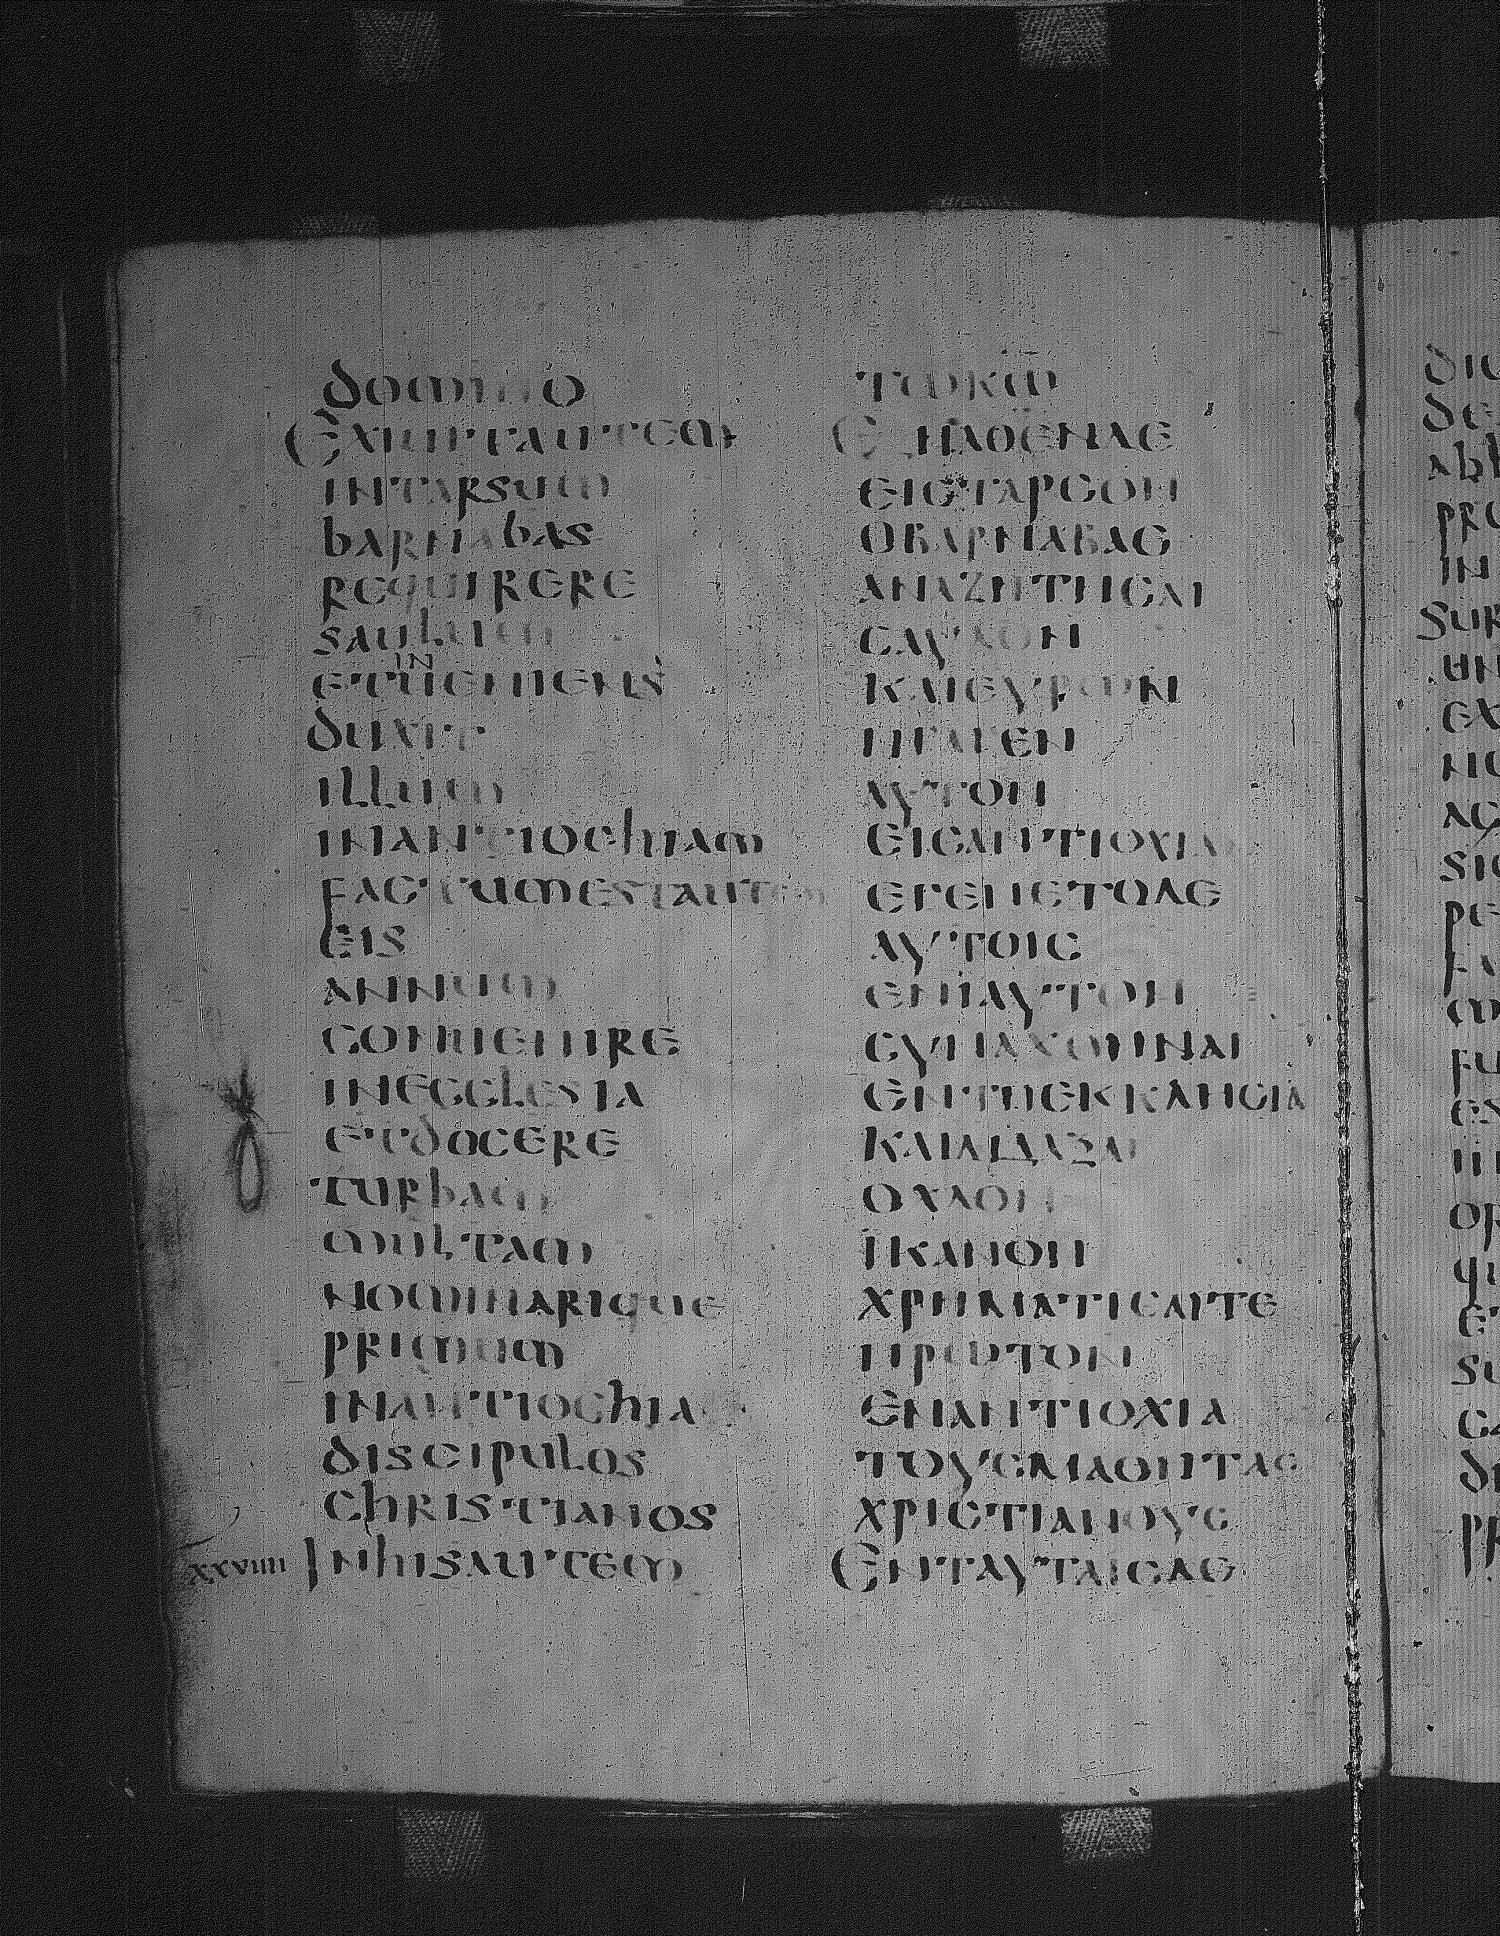 domino
Exiuitautem
intarsum
barnabas
requirere
saulum
in
etueniens
duxit
illum
inantiochiam
factumestautem
eis
annum
conuenire
inecclesia
etdocere
turbam
multam
nominarique
primum
inantiochia
discipulos
christianos
xxviiii Inhisautem
ΤΩΚΩ
ΕΞΗΛΘΕΝΔΕ
ΕΙϹΤΑΡϹΟΝ
ΟΒΑΡΝΑΒΑϹ
ΑΝΑΖΗΤΗϹΑΙ
ϹΑΥΛΟΝ
ΚΑΙΕΥΡΩΝ
ΗΓΑΓΕΝ
ΑΥΤΟΝ
ΕΙϹΑΝΤΙΟΧΙΑΝ
ΕΓΕΝΕΤΟΔΕ
ΑΥΤΟΙϹ
ΕΝΙΑΥΤΟΝ
ϹΥΝΑΧΘΗΝΑΙ
ΕΝΤΗΕΚΚΛΗϹΙΑ
ΚΑΙΔΙΔΑΞΑΙ
ΟΧΛΟΝ
ΙΚΑΝΟΝ
ΧΡΗΜΑΤΙϹΑΙΤΕ
ΠΡΩΤΟΝ
ΕΝΑΝΤΙΟΧΙΑ
ΤΟΥϹΜΑΘΗΤΑϹ
ΧΡΙϹΤΙΑΝΟΥϹ
ΕΝΤΑΥΤΑΙϹΔΕ